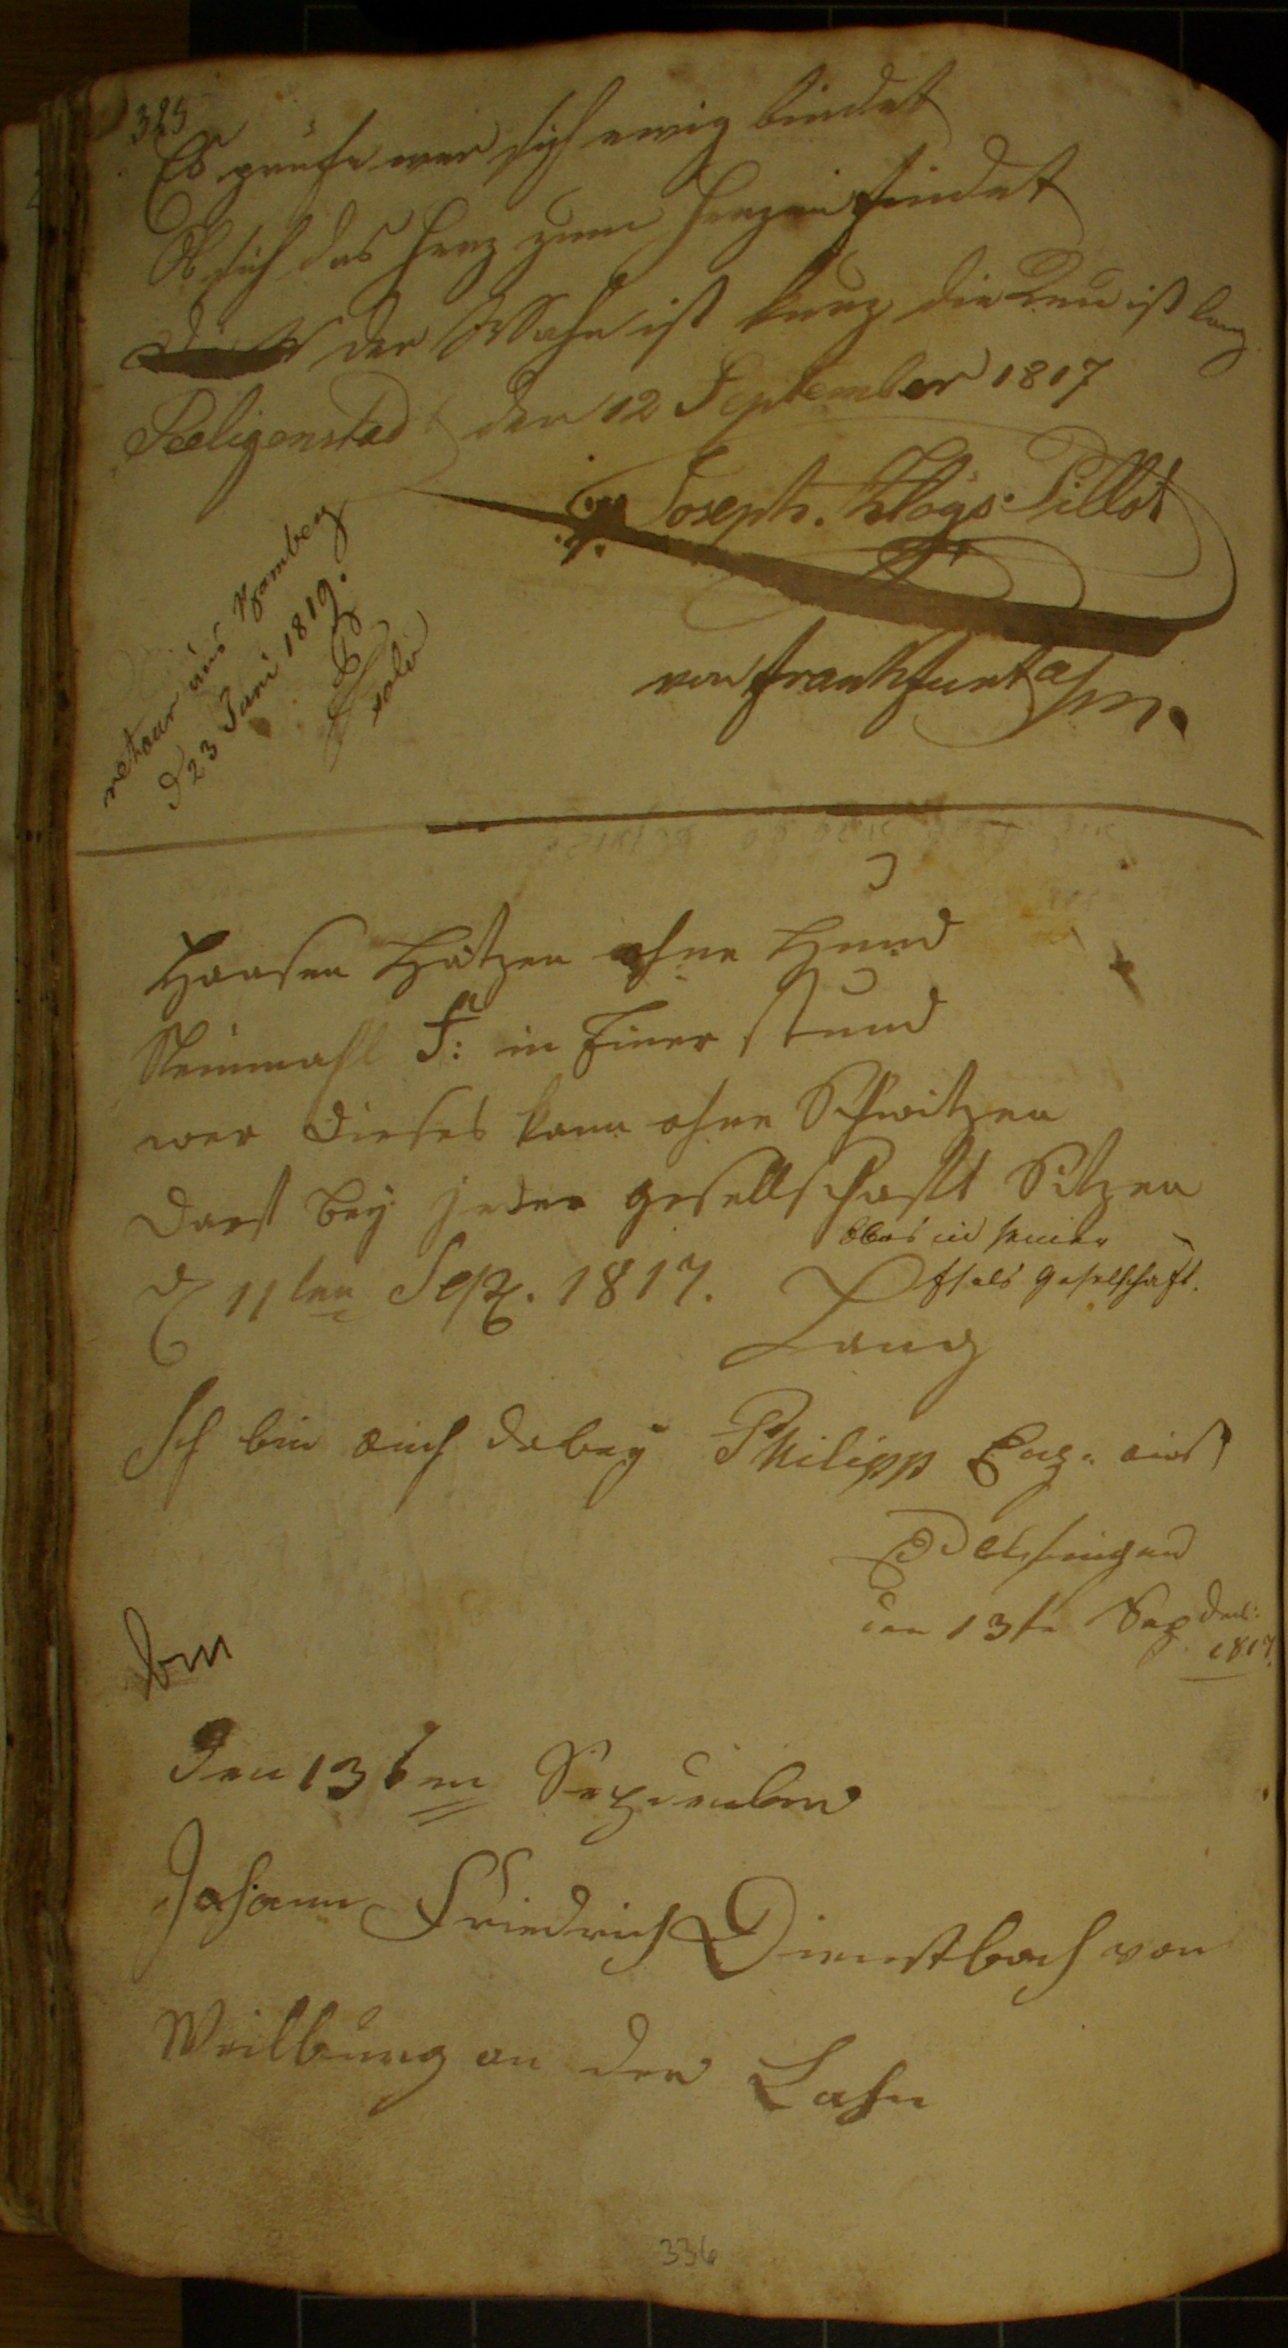 325
Es prüfe wer sich ewig bindet
Ob sich das Herz zum Herzen findet
der Wahn ist kurz die Reu ist lang
Seeligenstad den 12 September 1817
Joseph. Aloys. Pillot
von Frankfurt a/m.
retour aus Bamberg
d 23 Juni 1819.
Haasen Hätzen ohne Hund
Neunmahl F: in Einer stund
wer dieses kann ohne Schwitzen
darf bey jeder gesellschafft Sitzen
aber in seiner
Esels Geselschaft.
d 11ten Sept. 1817.
Lang
Ich bin auch dabey Philipp aus
den 13te Sepdem:
1817.
Den 13ten Sepdember
Johann Friedrich Dienstbach von
Weilburg an der Lahn
336